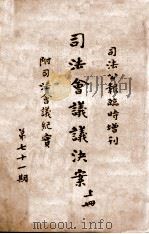 司法公報臨時增刊
司法會議議決案上冊
附司法會議紀實
第七十一期